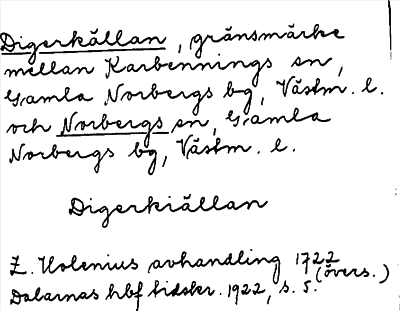 Digerkällan, gränsmärke
mellan Karbennings sn,
Gamla Norbergs bg, Västm. l.
och Norbergs sn, Gamla
Norbergs bg, Västm. l.
Digerkiällan
Z. Holenius avhandling 1722
(övers.)
Dalarnas hbf tidskr. 1922, s. 5.